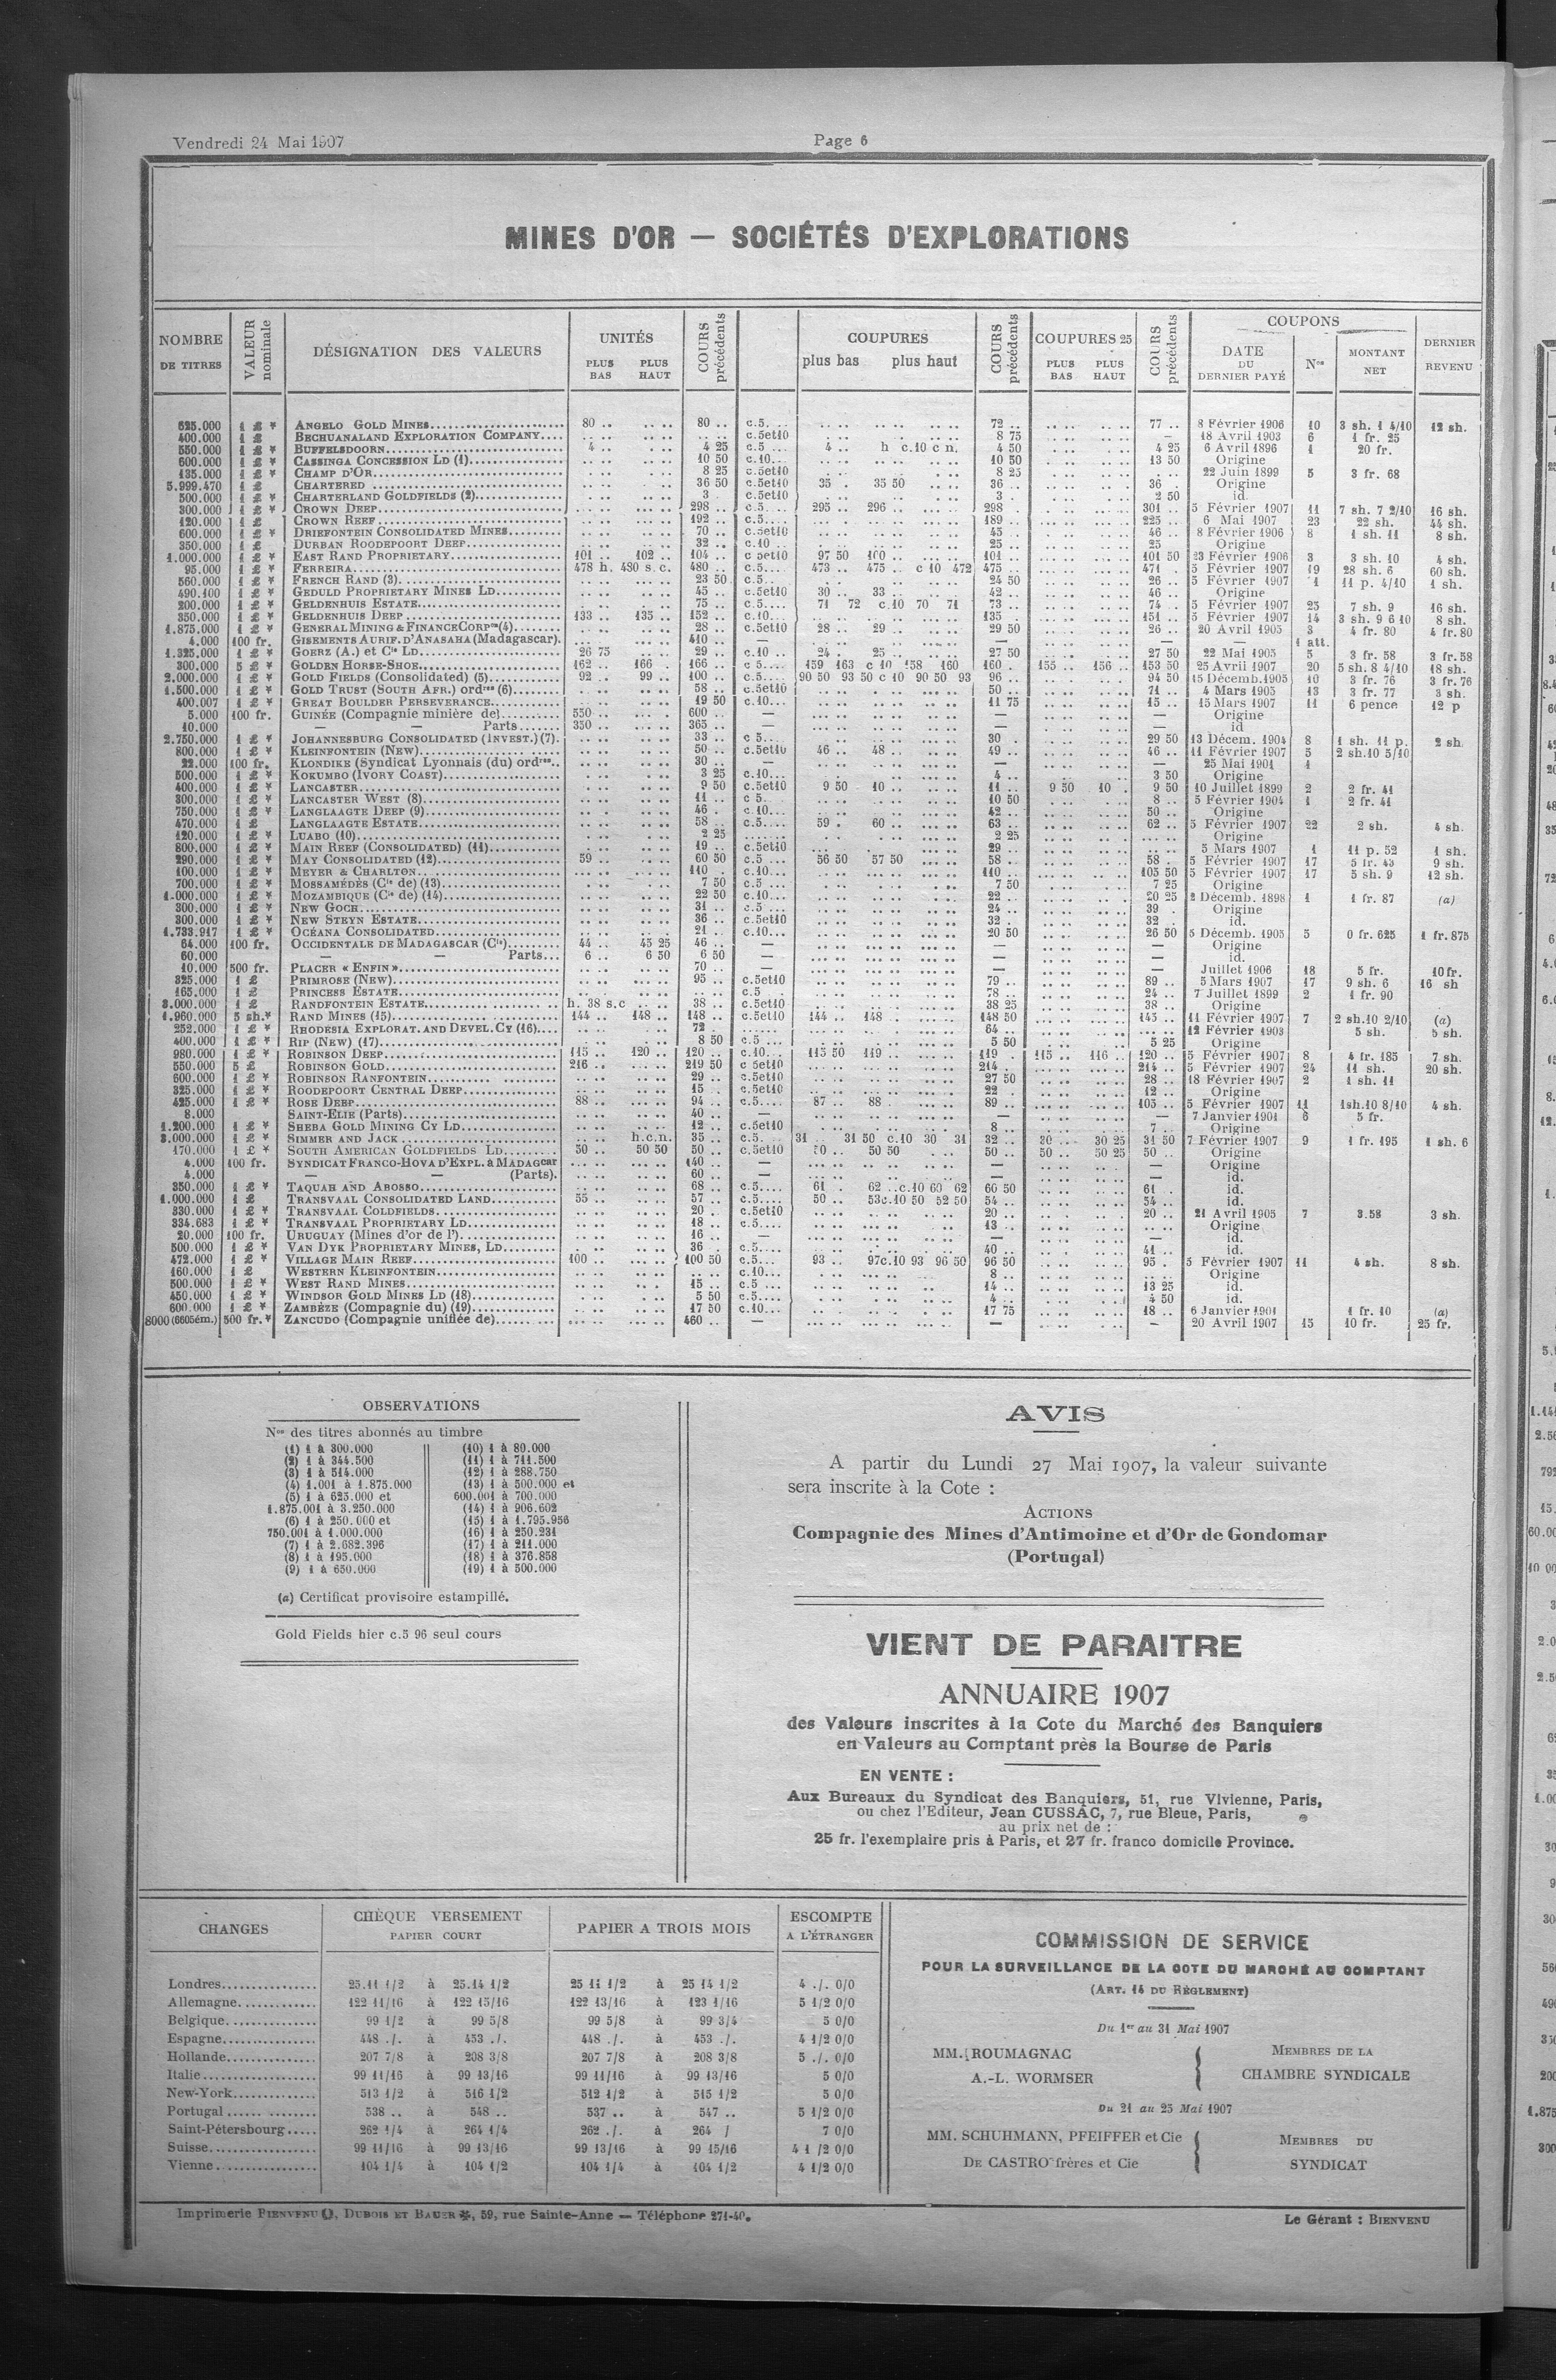 Vendredi 24 Mai 1907
Page 6
MINES D'OR — SOCIÉTÉS D'EXPLORATIONS
NOMBRE DE TITRES | VALEUR nominale | DÉSIGNATION DES VALEURS | UNITÉS PLUS BAS PLUS HAUT | COURS précédents | COUPURES plus bas plus haut | COURS précédents | COUPURES 25 PLUS BAS PLUS HAUT | COURS précédents | COUPONS DATE DU DERNIER PAYÉ Nos MONTANT NET | DERNIER REVENU
625.000 1 £ * ANGELO GOLD MINES 80 .. 80 .. c.5 72 .. 77 .. 8 Février 1906 10 3 sh. 1 4/10 12 sh.
400.000 1 £ BECHUANALAND EXPLORATION COMPANY c.5et10 8 75 — 18 Avril 1903 6 1 fr. 25
550.000 1 £ * BUFFELSDOORN 4 .. 4 25 c.5 4 .. h c.10 c n. 4 50 4 25 6 Avril 1896 1 20 fr.
600.000 1 £ * CASSINGA CONCESSION LD (1) 10 50 c.10 10 50 13 50 Origine
135.000 1 £ * CHAMP D'OR 8 25 c.5et10 8 25 22 Juin 1899 5 3 fr. 68
5.999.470 1 £ CHARTERED 36 50 c.5et10 35 . 35 50 36 .. 36 .. Origine
500.000 1 £ * CHARTERLAND GOLDFIELDS (2) 3 . c.5et10 3 . 2 50 id.
300.000 1 £ * CROWN DEEP 298 .. c.5 295 .. 296 .. 298 . 301 .. 5 Février 1907 11 7 sh. 7 2/10 16 sh.
120.000 1 £ CROWN REEF 192 .. c.5 189 .. 225 .. 6 Mai 1907 23 22 sh. 44 sh.
600.000 1 £ * DRIEFONTEIN CONSOLIDATED MINES 70 .. c.5et10 45 .. 46 .. 8 Février 1906 8 1 sh. 11 8 sh.
350.000 1 £ DURBAN ROODEPOORT DEEP 32 .. c.10 25 .. 25 Origine
1.000.000 1 £ * EAST RAND PROPRIETARY 101 .. 102 .. 104 .. c 5et10 97 50 100 .. 101 101 50 23 Février 1906 3 3 sh. 10 4 sh.
95.000 1 £ * FERREIRA 478 h. 480 s.c. 480 .. c.5 473 .. 475 .. c 10 472 475 .. 471 . 5 Février 1907 19 28 sh. 6 60 sh.
560.000 1 £ * FRENCH RAND (3) 23 50 c.5 24 50 26 .. 5 Février 1907 1 11 p. 4/10 1 sh.
490.100 1 £ * GEDULD PROPRIETARY MINES LD 45 .. c.5et10 30 .. 33 .. 42 .. 46 .. Origine
200.000 1 £ * GELDENHUIS ESTATE 75 .. c.5 71 72 c.10 70 71 73 .. 74 . 5 Février 1907 25 7 sh. 9 16 sh.
350.000 1 £ * GELDENHUIS DEEP 133 .. 135 .. 152 .. c.10 135 . 151 .. 5 Février 1907 14 3 sh. 9 6 10 8 sh.
1.875.000 1 £ * GENERAL MINING & FINANCE CORPon (4) 28 .. c.5et10 28 .. 29 .. 29 50 26 .. 20 Avril 1905 3 4 fr. 80 4 fr. 80
4.000 100 fr. GISEMENTS AURIF. D'ANASAHA (Madagascar). 410 .. — — — — 1 att.
1.325.000 1 £ * GOERZ (A.) et Cie LD 26 75 29 .. c.10 24 . 25 .. 27 50 27 50 22 Mai 1905 5 3 fr. 58 3 fr. 58
300.000 5 £ * GOLDEN HORSE-SHOE 162 .. 166 . 166 .. c 5 159 163 c 10 158 160 160 . 155 .. 156 .. 153 50 25 Avril 1907 20 5 sh. 8 4/10 18 sh.
2.000.000 1 £ * GOLD FIELDS (Consolidated) (5) 92 .. 99 .. 100 .. c.5 90 50 93 50 c 10 90 50 93 96 .. 94 50 15 Décemb. 1905 10 3 fr. 76 3 fr. 76
1.500.000 1 £ * GOLD TRUST (SOUTH AFR.) ordres (6) 58 .. c.5et10 50 .. 71 .. 4 Mars 1905 13 3 fr. 77 3 sh.
400.007 1 £ * GREAT BOULDER PERSEVERANCE 19 50 c.10 11 75 15 .. 15 Mars 1907 11 6 pence 12 p
5.000 100 fr. GUINÉE (Compagnie minière de) 550 .. 600 .. — — — Origine
10.000 — Parts 350 .. 365 .. — — — id
2.750.000 1 £ * JOHANNESBURG CONSOLIDATED (INVEST.) (7). 33 .. c 5 30 29 50 13 Décem. 1904 8 1 sh. 11 p. 2 sh.
800.000 1 £ * KLEINFONTEIN (NEW) 50 .. c.5et10 46 .. 48 .. 49 .. 46 .. 11 Février 1907 5 2 sh. 10 5/10
22.000 100 fr. KLONDIKE (Syndicat Lyonnais (du) ordres 30 .. — — — 25 Mai 1901 1
500.000 1 £ * KOKUMBO (IVORY COAST) 3 25 c.10 4 .. 3 50 Origine
400.000 1 £ * LANCASTER 9 50 c.5et10 9 50 10 .. 11 .. 9 50 10 . 9 50 10 Juillet 1899 2 2 fr. 41
300.000 1 £ * LANCASTER WEST (8) 11 .. c 5 10 50 8 .. 5 Février 1904 1 2 fr. 41
750.000 1 £ * LANGLAAGTE DEEP (9) 46 . c.10 42 .. 50 .. Origine
470.000 1 £ LANGLAAGTE ESTATE 58 .. c.5 59 . 60 .. 63 .. 62 .. 5 Février 1907 22 2 sh. 4 sh.
120.000 1 £ * LUABO (10) 2 25 2 25 Origine
800.000 1 £ * MAIN REEF (CONSOLIDATED) (11) 19 .. c.5et10 29 .. 5 Mars 1907 1 11 p. 52 1 sh.
290.000 1 £ * MAY CONSOLIDATED (12) 59 .. 60 50 c.5 56 50 57 50 58 . 58 . 5 Février 1907 17 5 fr. 43 9 sh.
100.000 1 £ * MEYER & CHARLTON 110 . c.10 110 .. 105 50 5 Février 1907 17 5 sh. 9 12 sh.
700.000 1 £ * MOSSAMÉDÈS (Cie de) (13) 7 50 c.5 7 50 7 25 Origine
1.000.000 1 £ * MOZAMBIQUE (Cie de) (14) 22 50 c.10 22 .. 20 25 2 Décemb. 1898 1 1 fr. 87 (a)
300.000 1 £ * NEW GOCH 31 .. c.5 24 .. 39 . Origine
300.000 1 £ * NEW STEYN ESTATE 36 .. c.5et10 32 .. 32 .. id.
1.733.917 1 £ * OCÉANA CONSOLIDATED 21 .. c.10 20 50 26 50 5 Décemb. 1905 5 0 fr. 625 1 fr. 875
64.000 100 fr. OCCIDENTALE DE MADAGASCAR (Cie) 44 .. 45 25 46 .. — — — Origine
60.000 — — Parts 6 .. 6 50 6 50 — — — id.
10.000 500 fr. PLACER « ENFIN » 70 .. — — — Juillet 1906 18 5 fr. 10 fr.
325.000 1 £ PRIMROSE (NEW) 95 .. c.5et10 79 .. 89 .. 5 Mars 1907 17 9 sh. 6 16 sh
165.000 1 £ PRINCESS ESTATE c.5 78 .. 24 .. 7 Juillet 1899 2 1 fr. 90
3.000.000 1 £ * RANDFONTEIN ESTATE h. 38 s.c 38 .. c.5et10 38 25 38 .. Origine
1.960.000 5 sh.* RAND MINES (15) 144 .. 148 .. 148 .. c.5et10 144 .. 148 148 50 145 .. 11 Février 1907 7 2 sh. 10 2/10 (a)
252.000 1 £ * RHODESIA EXPLORAT. AND DEVEL. CY (16) 72 . 64 .. 12 Février 1903 5 sh. 5 sh.
400.000 1 £ * RIP (NEW) (17) 8 50 c.5 5 50 5 25 Origine
980.000 1 £ * ROBINSON DEEP 115 .. 120 .. 120 .. c.10 115 50 119 .. 119 . 115 .. 116 .. 120 .. 5 Février 1907 8 4 fr. 185 7 sh.
550.000 5 £ ROBINSON GOLD 216 .. 219 50 c 5et10 214 .. 214 .. 5 Février 1907 24 11 sh. 20 sh.
600.000 1 £ * ROBINSON RANFONTEIN 29 .. c.5et10 27 50 28 .. 18 Février 1907 2 1 sh. 11
325.000 1 £ * ROODEPOORT CENTRAL DEEP 15 .. c.5et10 22 .. 12 .. Origine
425.000 1 £ * ROSE DEEP 88 .. 94 .. c.5 87 .. 88 .. 89 .. 105 .. 5 Février 1907 11 1sh.10 8/10 4 sh.
8.000 SAINT-ELIE (Parts) 40 .. — — — 7 Janvier 1901 6 5 fr.
1.200.000 1 £ * SHEBA GOLD MINING CY LD 12 .. c.5et10 8 .. 7 .. Origine
3.000.000 1 £ * SIMMER AND JACK h.c.n. 35 .. c.5. 31 .. 31 50 c.10 30 31 32 .. 30 .. 30 25 31 50 7 Février 1907 9 1 fr. 195 1 sh. 6
170.000 1 £ * SOUTH AMERICAN GOLDFIELDS LD 50 .. 50 50 50 .. c.5et10 50 .. 50 50 50 .. 50 .. 50 25 50 .. Origine
4.000 100 fr. SYNDICAT FRANCO-HOVA D'EXPL. à MADAGcar 140 .. — — — Origine
4.000 — (Parts). 60 .. — — — id.
350.000 1 £ * TAQUAH AND ABOSSO 68 .. c.5 61 . 62 .. c.10 60 62 60 50 61 . id.
1.000.000 1 £ TRANSVAAL CONSOLIDATED LAND 55 .. 57 .. c.5 50 .. 53c.10 50 52 50 54 .. 54 .. id.
330.000 1 £ * TRANSVAAL COLDFIELDS 20 . c.5et10 20 .. 20 .. 21 Avril 1905 7 3.58 3 sh.
334.683 1 £ * TRANSVAAL PROPRIETARY LD 18 .. c.5 13 .. Origine
20.000 100 fr. URUGUAY (Mines d'or de l') 16 .. — — — id.
500.000 1 £ * VAN DYK PROPRIETARY MINES, LD 36 . c.5 40 .. 41 .. id.
472.000 1 £ * VILLAGE MAIN REEF 100 .. 100 50 c.5 93 .. 97c.10 93 96 50 96 50 95 . 5 Février 1907 11 4 sh. 8 sh.
160.000 1 £ WESTERN KLEINFONTEIN c.10 8 .. Origine
500.000 1 £ * WEST RAND MINES 15 .. c.5 14 .. 13 25 id.
450.000 1 £ * WINDSOR GOLD MINES LD (18) 5 50 c.5 4 .. 4 50 id.
600.000 1 £ * ZAMBÈZE (Compagnie du) (19) 17 50 c.10 17 75 18 .. 6 Janvier 1901 1 fr. 10 (a)
8000 (6605ém.) 500 fr.* ZANCUDO (Compagnie unifiée de) 460 .. — — — 20 Avril 1907 15 10 fr. 25 fr.
OBSERVATIONS
Nos des titres abonnés au timbre
(1) 1 à 300.000
(2) 1 à 344.500
(3) 1 à 514.000
(4) 1.001 à 1.875.000
(5) 1 à 625.000 et
1.875.001 à 3.250.000
(6) 1 à 250.000 et
750.001 à 1.000.000
(7) 1 à 2.682.396
(8) 1 à 195.000
(9) 1 à 650.000
(10) 1 à 80.000
(11) 1 à 711.500
(12) 1 à 288.750
(13) 1 à 500.000 et
600.001 à 700.000
(14) 1 à 906.602
(15) 1 à 1.795.956
(16) 1 à 250.231
(17) 1 à 211.000
(18) 1 à 376.858
(19) 1 à 500.000
(a) Certificat provisoire estampillé.
Gold Fields hier c.5 96 seul cours
AVIS
A partir du Lundi 27 Mai 1907, la valeur suivante
sera inscrite à la Cote :
ACTIONS
Compagnie des Mines d'Antimoine et d'Or de Gondomar
(Portugal)
VIENT DE PARAITRE
ANNUAIRE 1907
des Valeurs inscrites à la Cote du Marché des Banquiers
en Valeurs au Comptant près la Bourse de Paris
EN VENTE :
Aux Bureaux du Syndicat des Banquiers, 51, rue Vivienne, Paris,
ou chez l'Editeur, Jean CUSSAC, 7, rue Bleue, Paris,
au prix net de :
25 fr. l'exemplaire pris à Paris, et 27 fr. franco domicile Province.
CHANGES | CHÈQUE VERSEMENT PAPIER COURT | PAPIER A TROIS MOIS | ESCOMPTE A L'ÉTRANGER
Londres 25.11 1/2 à 25.14 1/2 25 11 1/2 à 25 14 1/2 4 ./. 0/0
Allemagne 122 11/16 à 122 15/16 122 13/16 à 123 1/16 5 1/2 0/0
Belgique 99 1/2 à 99 5/8 99 5/8 à 99 3/4 5 0/0
Espagne 448 ./. à 453 ./. 448 ./. à 453 ./. 4 1/2 0/0
Hollande 207 7/8 à 208 3/8 207 7/8 à 208 3/8 5 ./. 0/0
Italie 99 11/16 à 99 13/16 99 11/16 à 99 13/16 5 0/0
New-York 513 1/2 à 516 1/2 512 1/2 à 515 1/2 5 0/0
Portugal 538 .. à 548 .. 537 .. à 547 .. 5 1/2 0/0
Saint-Pétersbourg 262 1/4 à 264 1/4 262 ./. à 264 / 7 0/0
Suisse 99 11/16 à 99 13/16 99 13/16 à 99 15/16 4 1 /2 0/0
Vienne 104 1/4 à 104 1/2 104 1/4 à 104 1/2 4 1/2 0/0
COMMISSION DE SERVICE
POUR LA SURVEILLANCE DE LA COTE DU MARCHÉ AU COMPTANT
(ART. 14 DU RÈGLEMENT)
Du 1er au 31 Mai 1907
MM. ROUMAGNAC
A.-L. WORMSER
MEMBRES DE LA
CHAMBRE SYNDICALE
Du 21 au 25 Mai 1907
MM. SCHUHMANN, PFEIFFER et Cie
DE CASTRO frères et Cie
MEMBRES DU
SYNDICAT
Imprimerie BIENVENU, DUBOIS ET BAUER, 59, rue Sainte-Anne — Téléphone 271-40.
Le Gérant : BIENVENU